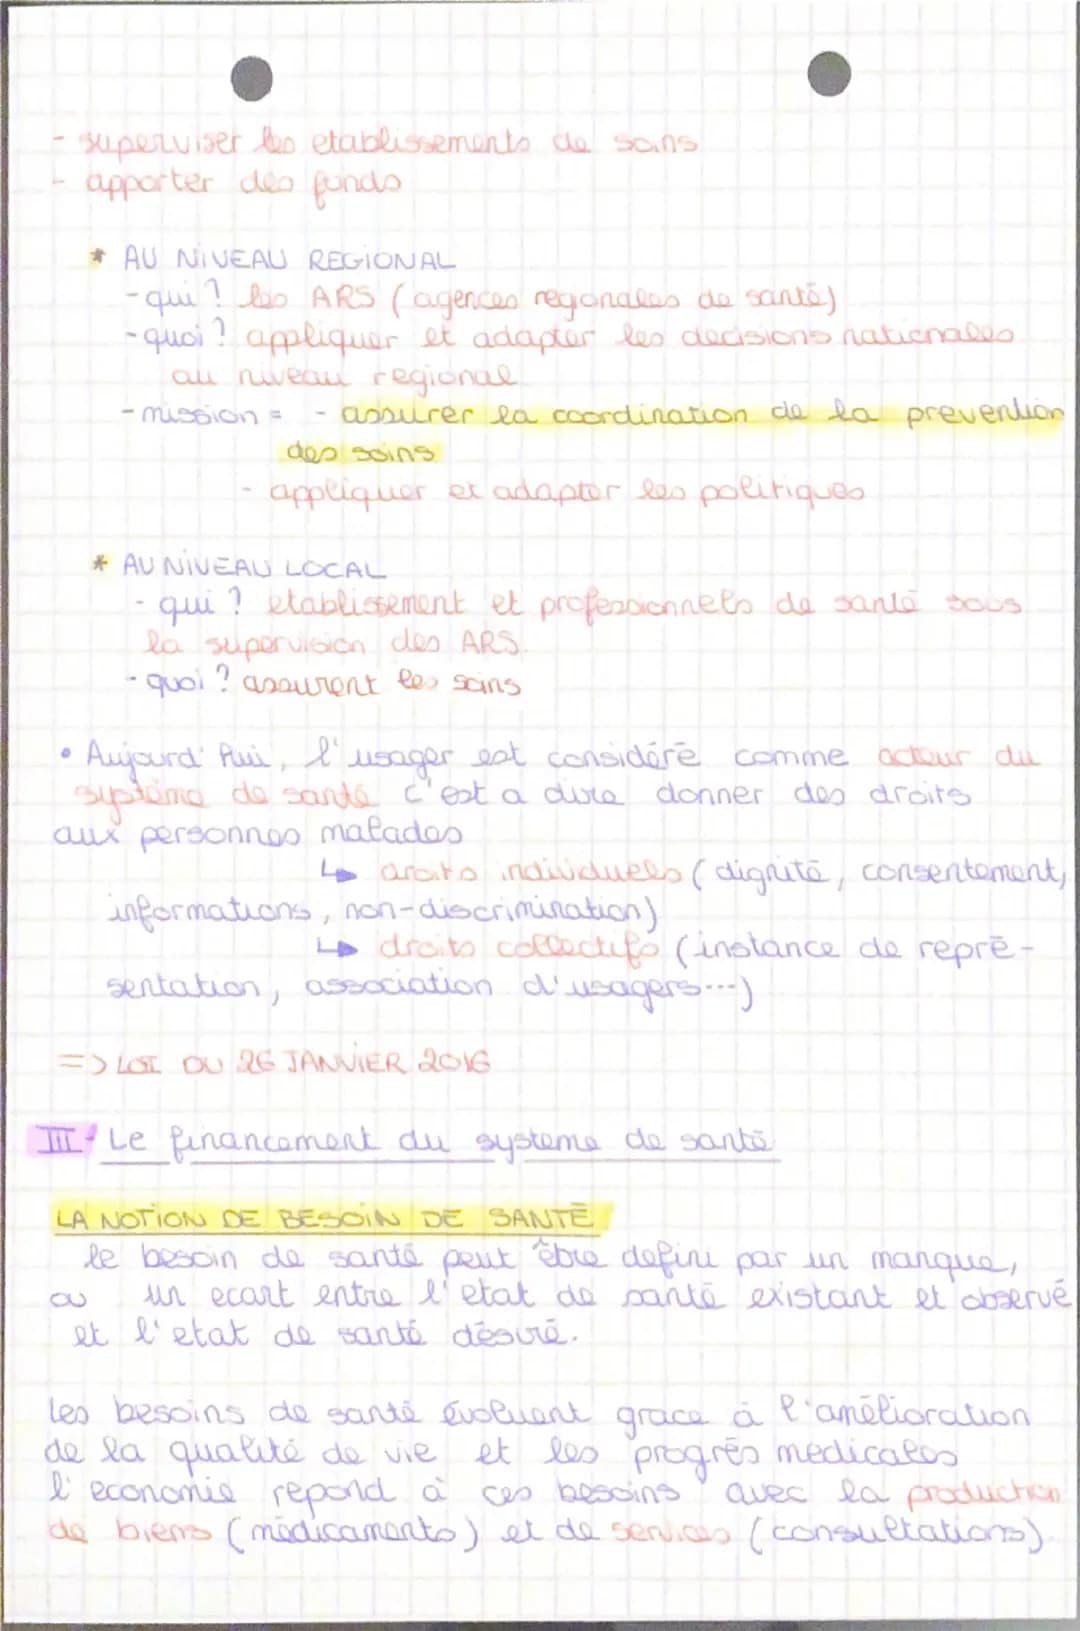 - superviser les etablissements de soins
- apporter des fonds
* AU NIVEAU REGIONAL
- qui ? les ARS (agences regionales de santé)
- quoi ? appliquer et adapter les decisions nationales
au niveau regional
- mission = - assurer la coordination de la prevention
des soins
- appliquer et adapter les politiques
* AU NIVEAU LOCAL
- qui ? etablissement et professionnels de santé sous
la supervision des ARS.
- quoi ? assurent les soins
• Aujourd'hui, l'usager est considéré comme acteur du
système de santé c'est a dire donner des droits
aux personnes malades
↳ droits individuels (dignité, consentement,
informations, non-discrimination)
↳ droits collectifs (instance de repré-
sentation, association d'usagers...)
=> LOI DU 26 JANVIER 2016
III - Le financement du systeme de santé
LA NOTION DE BESOIN DE SANTÉ
le besoin de santé peut être defini par un manque,
ou un ecart entre l'etat de santé existant et observé
et l'etat de santé désiré.
les besoins de santé évoluent grace à l'amélioration
de la qualité de vie et les progrès medicales
l'economie repond à ces besoins avec la production
de biens (médicaments) et de services (consultations).